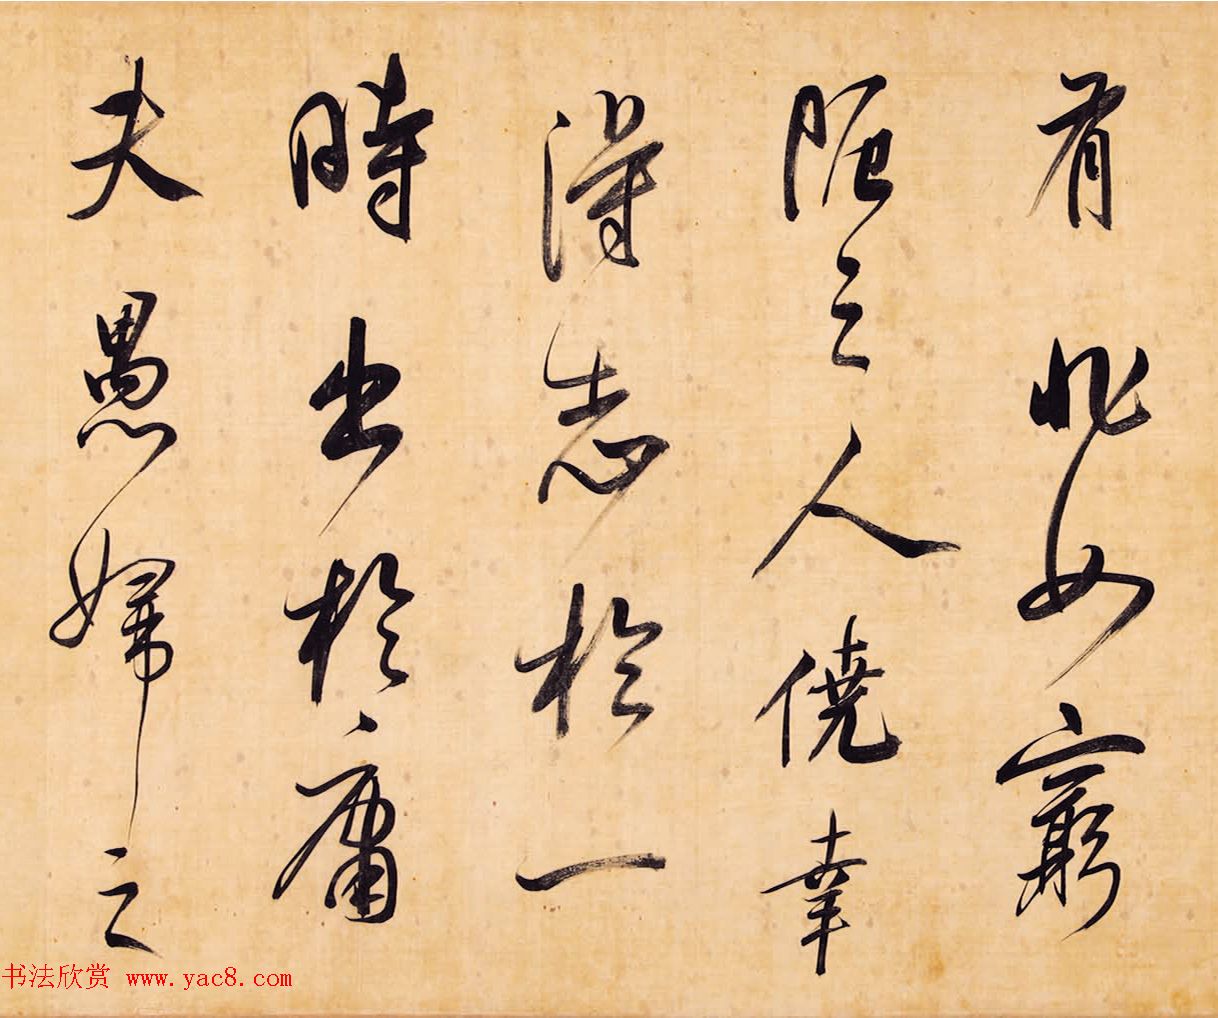 有非如窮
阨之人僥幸
得志於一
時出於庸
夫愚婦之
书法欣赏 www.yac8.com